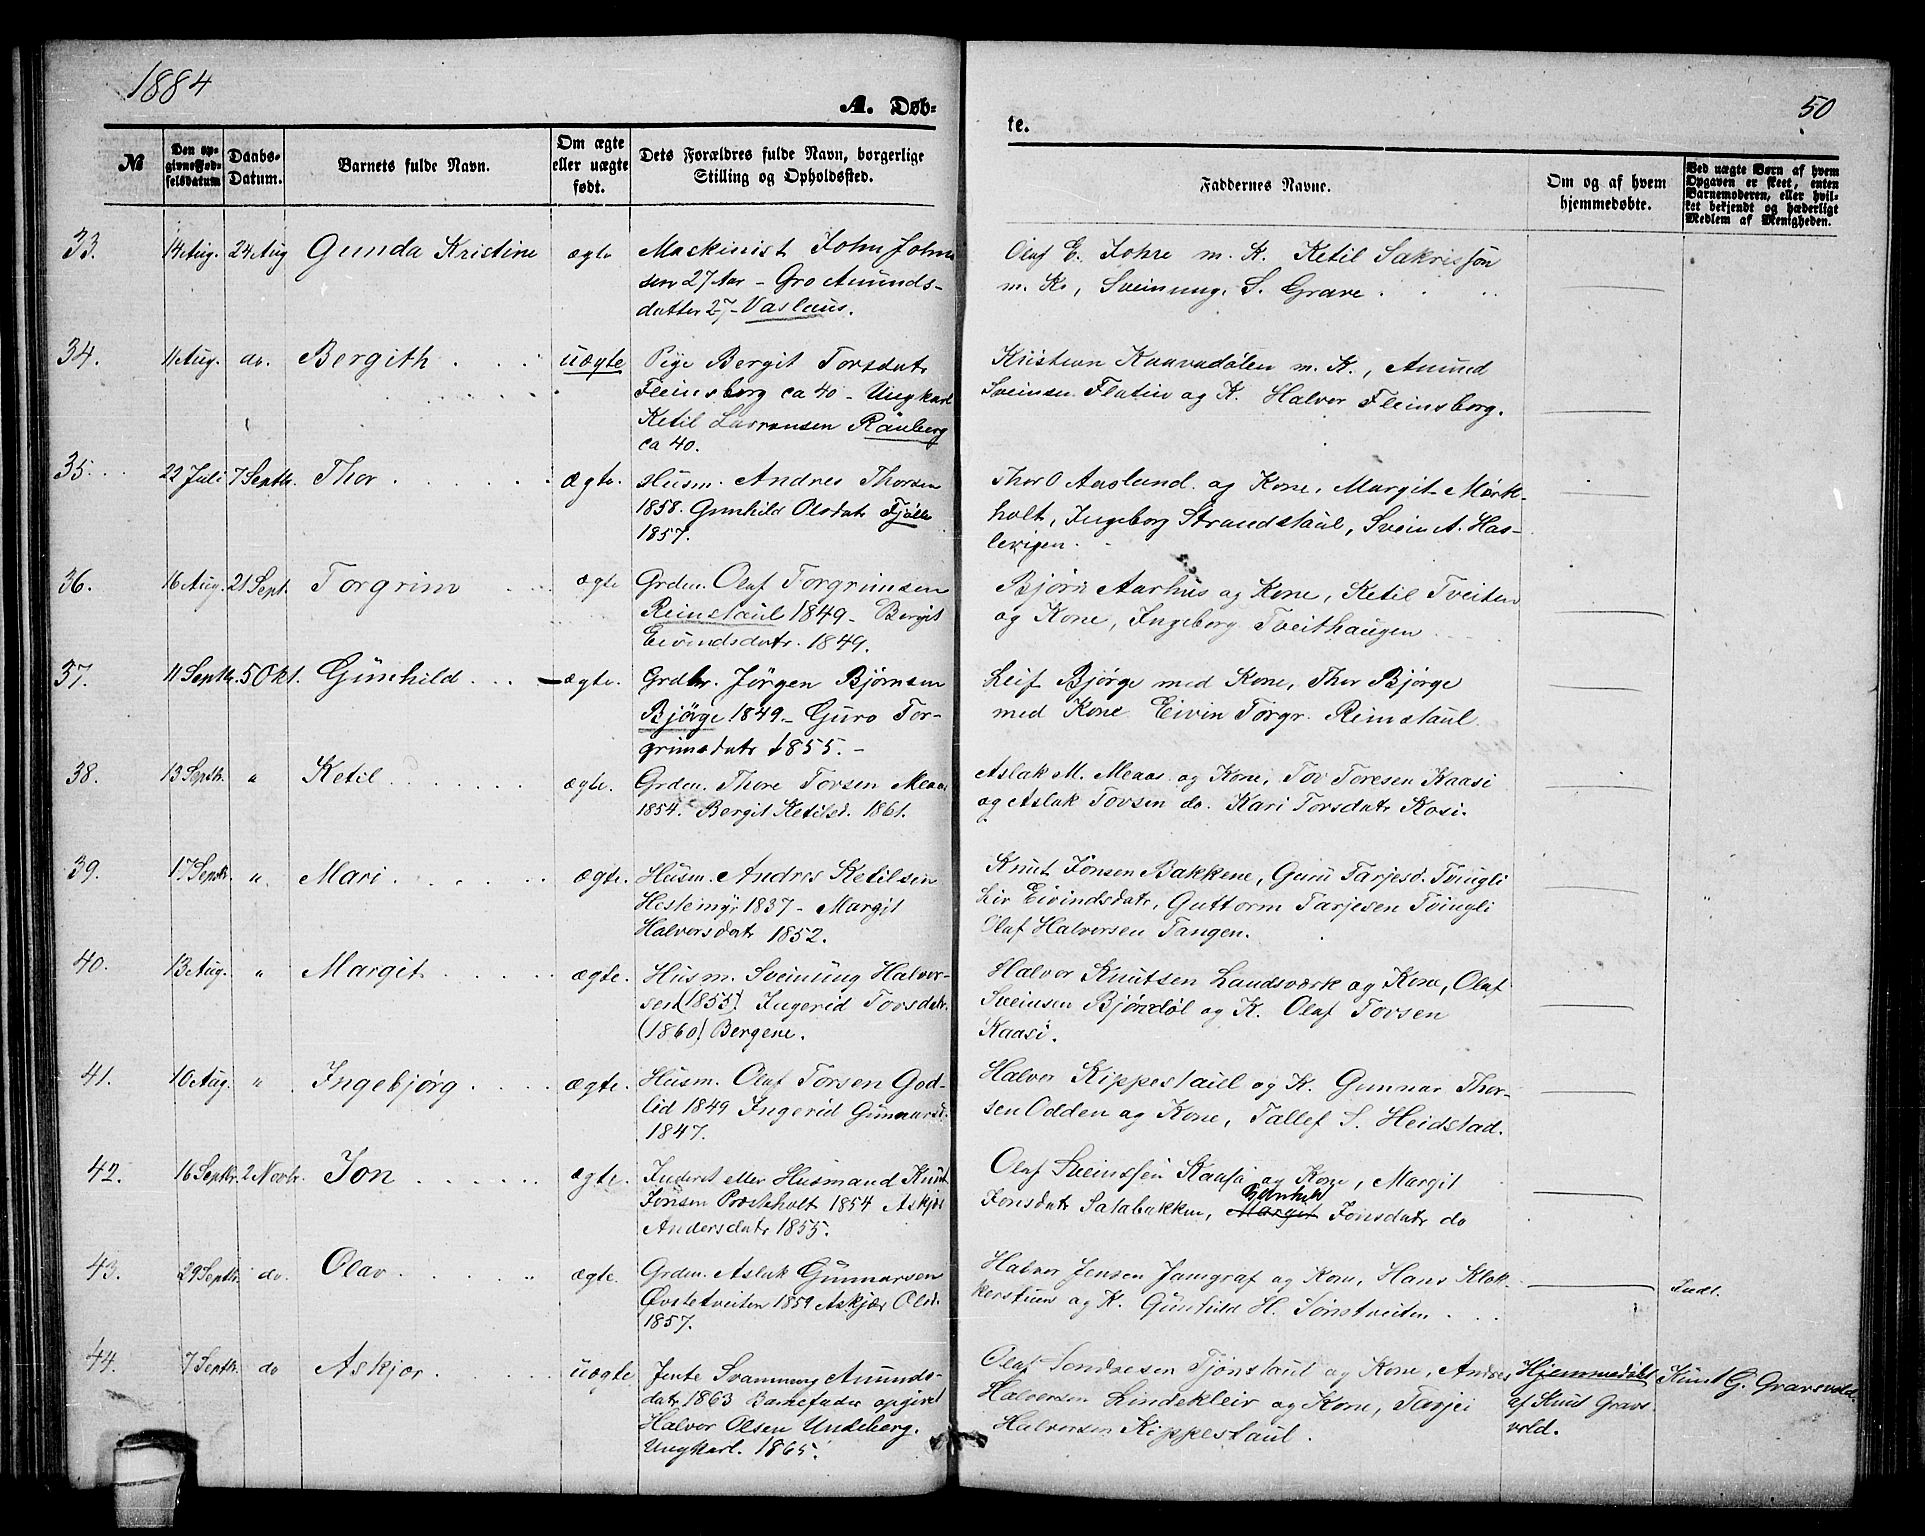 1884
50
A. Døb-
te.
№
Den op-
givne Fød-
selsdatum
Daabs-
Datum.
Barnets fulde Navn.
Om ægte
eller uægte
født.
Dets Forældres fulde Navn, borgerlige
Stilling og Opholdssted.
Faddernes Navne.
Om og af hvem
hjemmedøbte.
Ved uægte Børn af hvem
Opgaven er skeet, enten
Barnemoderen, eller hvil-
ket bekjendt og hæderligt
Medlem af Menigheden.
33. 14 Aug. 24 Aug Gunda Kristine ægte Maskinist John John
sen 27 Aar - Gro Amunds-
datter 27 - Vaslaus.
Olaf E. Johre m. K. Ketil Sakrisson
m. K., Sveinung S. Grave.
34. 11 Aug. do. Bergith uægte Pige Bergit Torsdatr
Fleinsborg ca 40 - Ungkarl
Ketil Lavransen Rauberg
ca 40.
Kristian Kaavadalen m. K., Amund
Sveinsen Flatin og K. Halvor Fleinsborg.
35. 22 Juli 7 Septb. Thor ægte. Husm. Andres Thorsen
1858. Gunhild Olsdatr Fjølle
1857.
Thor O Aaslund og Kone, Margit Mørk-
holt, Ingeborg Strandstaul, Svein A. Has-
levigen.
36. 16 Aug. 21 Sept. Torgrim ægte Grden. Olaf Torgrimsen
Reinstaul 1849 - Bergit
Eivindsdatr. 1849.
Bjørn Aarhus og Kone, Ketil Tveiten
og Kone, Ingeborg Tveithaugen
37. 11 Septb. 5 Okt. Gunhild ægte. Grdbr. Jørgen Bjørnsen
Bjørge 1849 - Guro Tor-
grimsdatr 1855. -
Leif Bjørge med Kone, Thor Bjørge
med Kone Eivin Torgr. Reinstaul
38. 13 Septbr. " Ketil ægte. Grden. Thore Tovsen Meaas
1854. Bergit Ketilsd. 1861.
Aslak M. Meaas og Kone, Tov Toresen Kaasi
og Aslak Tovsen do. Kari Tovsdatr Kosi.
39. 17 Septbr. " Mari ægte. Husm. Andres Ketilsen
Hestemyr 1837 - Margit
Halversdatr 1852.
Knut Jonsen Bakkene, Guru Tarjesd. Tvingli
Liv Eivindsdatr, Guttorm Tarjesen Tvingli
Olaf Halversen Tangen.
40. 13 Aug. " Margit ægte. Husm. Sveinung Halver-
sen (1855) Ingerid Tovsdatr.
(1860) Bergene.
Halvor Knutsen Landsværk og Kone, Olaf
Sveinsen Bjøndøl og K. Olaf Tovsen
Kaasi.
41. 10 Aug. " Ingebjørg ægte. Husm. Olaf Torsen God-
lid 1849 Ingerid Gunnarsd.
1847.
Halvor Kippestaul og K. Gunnar Thor-
sen Odden og Kone, Tallef S. Heidstad.
42. 16 Septbr. 2 Novbr. Jon ægte. Inderst eller Husmand Knut
Jonsen Prestholt 1854 Askjer
Andersdatr 1855.
Olaf Sveinssen Kaasa og Kone, Margit
Jonsdatr Salabakken, Margit Gunhild Jonsdatr do
43. 29 Septbr. do. Olav ægte. Grden. Aslak Gunnarsen
Øvstetveiten 1859 Askjær Olsd.
1857.
Halvor Jensen Jamgraf og Kone, Hans Klok-
kerstuen og K. Gunhild H. Tønstveiten
Indl.
44. 7 Septbr. do Askjer uægte Jente Svanaug Amunds-
datr 1863 Barnefader opgivet
Halvor Olsen Undeberg.
Ungkarl. 1865.
Olaf Sondresen Tjønstaul og Kone, Andres
Halversen Lindekleiv og Kone, Tarjei
Halversen Kippestaul.
Hjemmedøbt
af Knut Gravs-
vold.
Knut G. Gravsvold